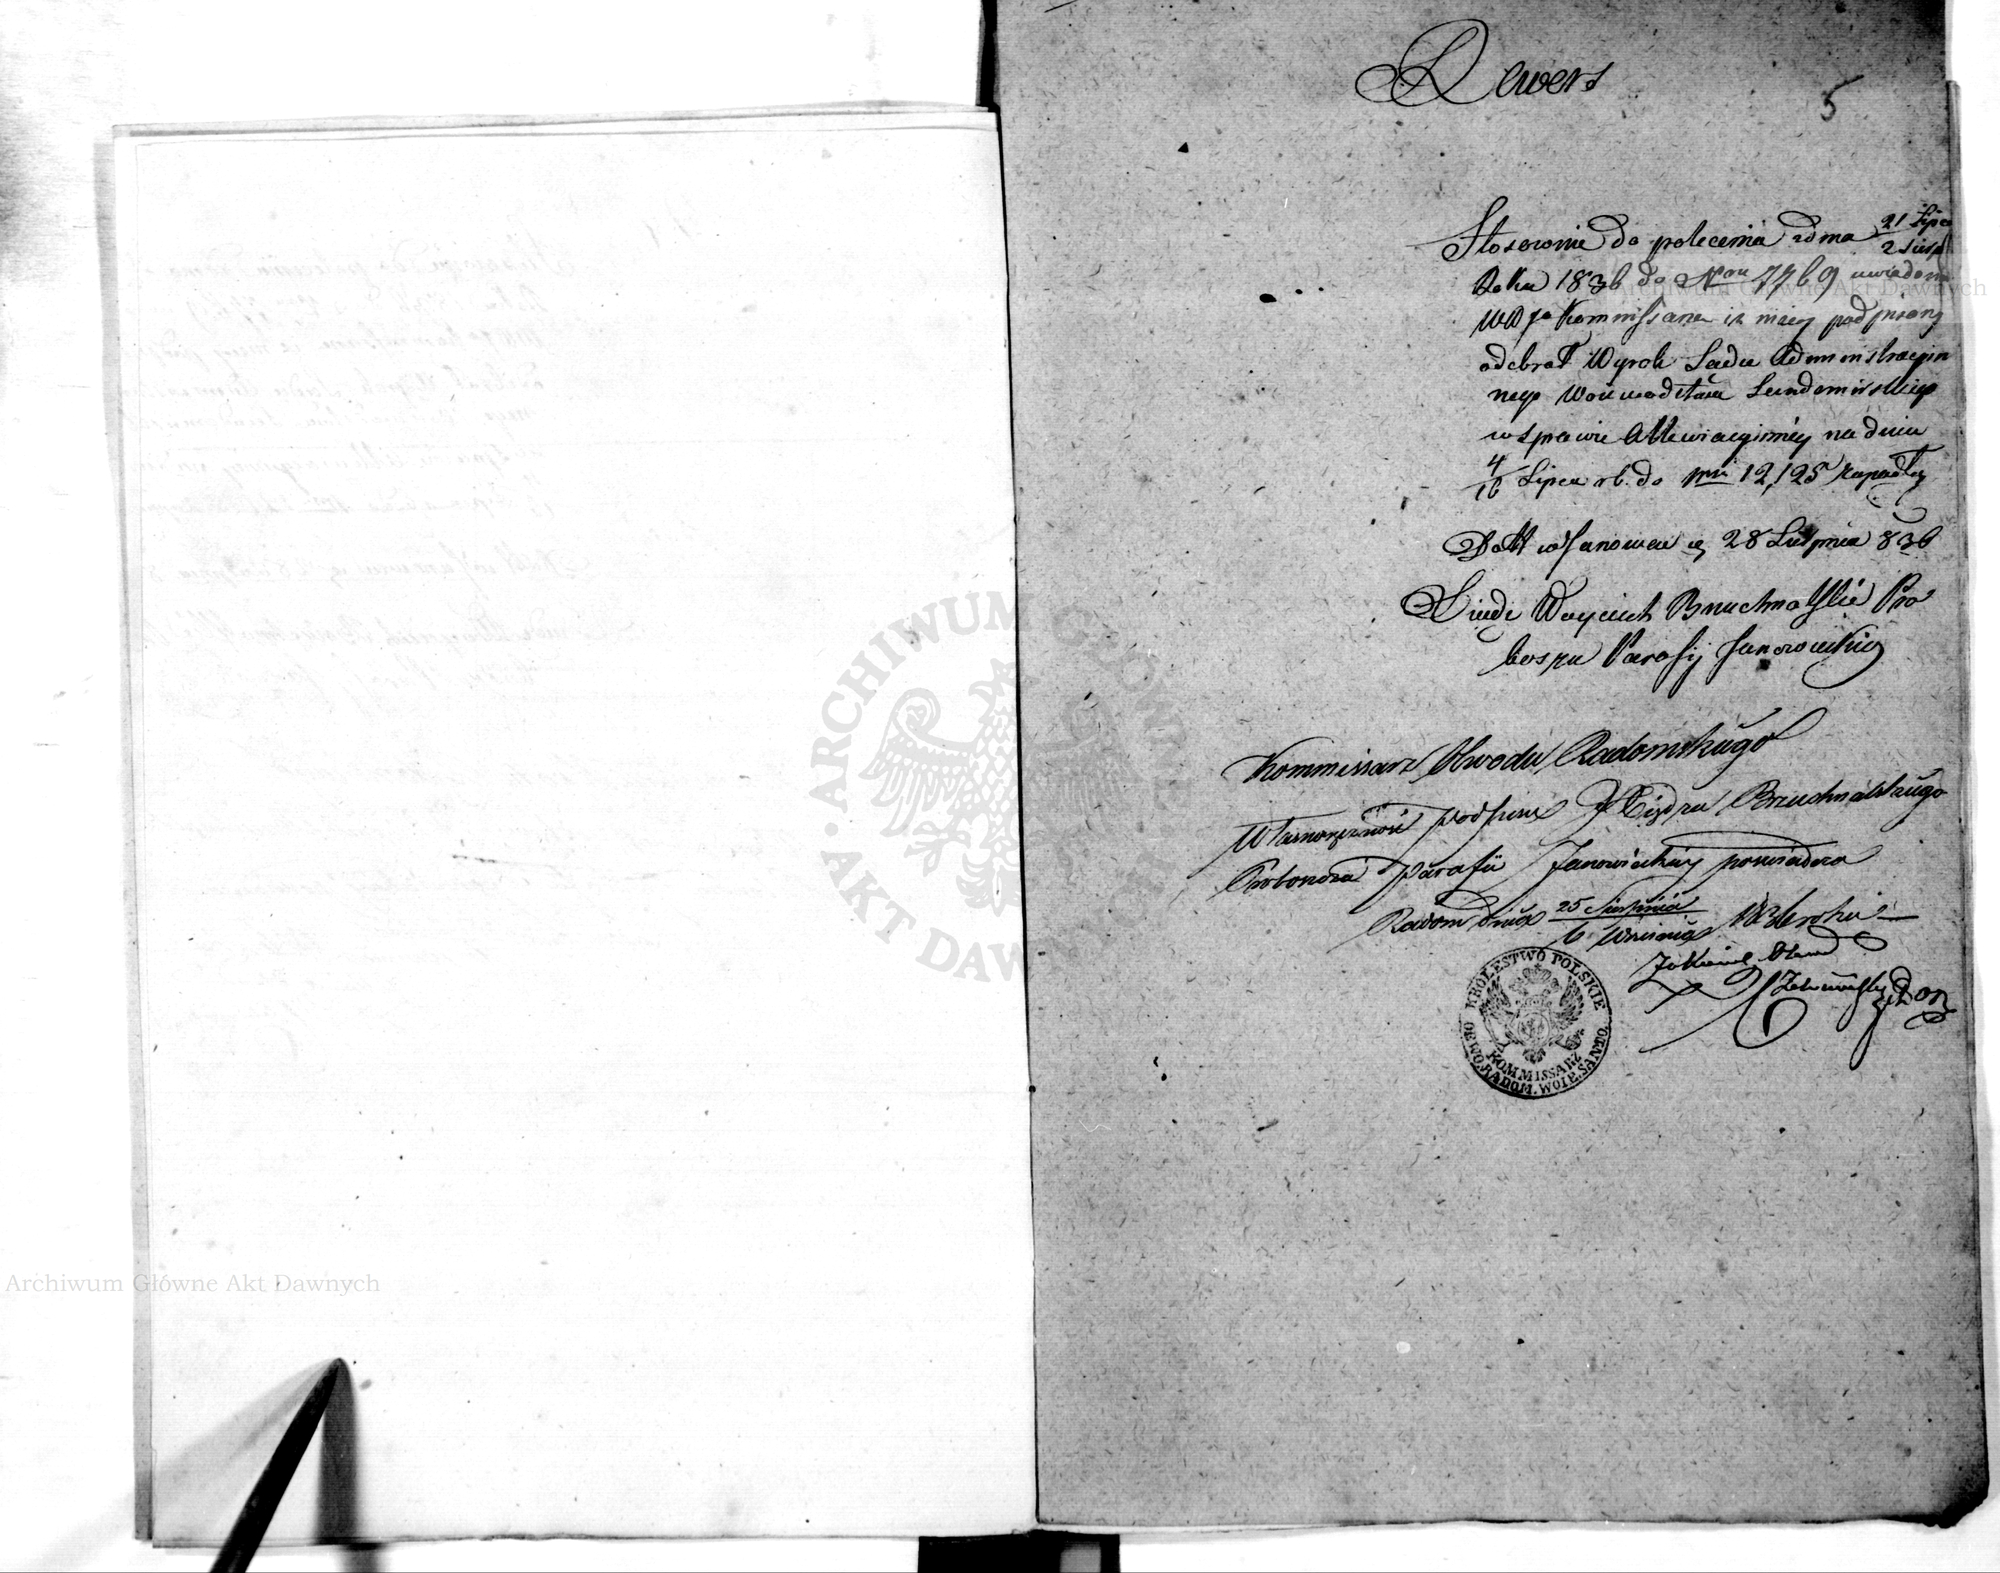 Rewers
5
Stosownie do polecenia z dnia 21 Lipca
2 Sierp
Roku 1836 do Nru 7769 uwiadam
WŋJo Kommissarza iż niżej podpisany
odebrał Wyrok Sądu Administracyin
nego Woiewodztwa Sandomirskiego
w sprawie Allewiacyinéy na dniu
4/16 Lipca rb. do nru 12,125 zapadły
Datt w Janowcu d. 28 Sierpnia 836
Xiądz Woyciech Bruchnalskie Pro
boszcz Parafij Janowieckiey
Kommissarz Obwodu Radomskiego
Własnoręczność podpisu Xiędza Bruchnalskiego
Proboszcza Parafii Janowieckiey poświadcza
Radom dnia 25 Sierpnia
6 Września 1836 roku
KRÓLESTWO POLSKIE
KOMMISSARZ
OBWO. RADOM. WOIE. SANDO.
Archiwum Główne Akt Dawnych
ARCHIWUM GŁÓWNE AKT DAWNYCH
Archiwum Główne Akt Dawnych